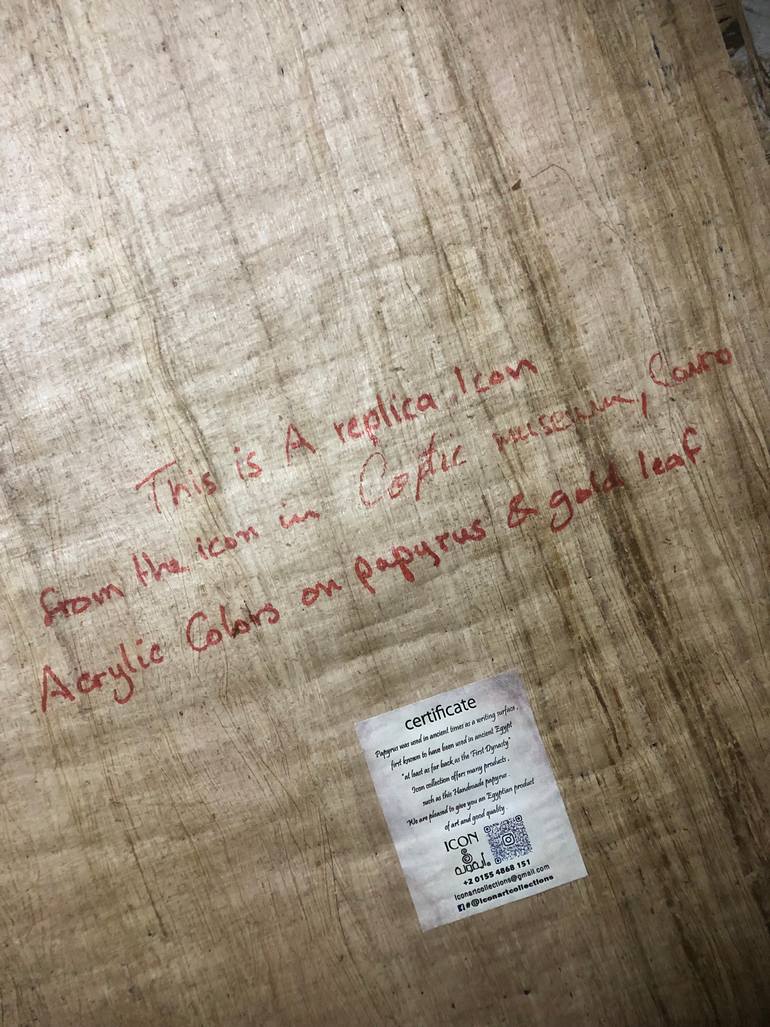 This is A replica Icon
from the icon in Coptic museum, Cairo
Acrylic Colors on papyrus & gold leaf
certificate
Papyrus was used in ancient times as a writing surface,
first known to have been used in ancient Egypt
"at least as far back as the First Dynasty"
Icon collection offers many products,
such as this Handmade papyrus.
We are pleased to give you an Egyptian product
of art and good quality.
ICON
+2 0155 4868 151
Iconartcollections@gmail.com
#@iconartcollections